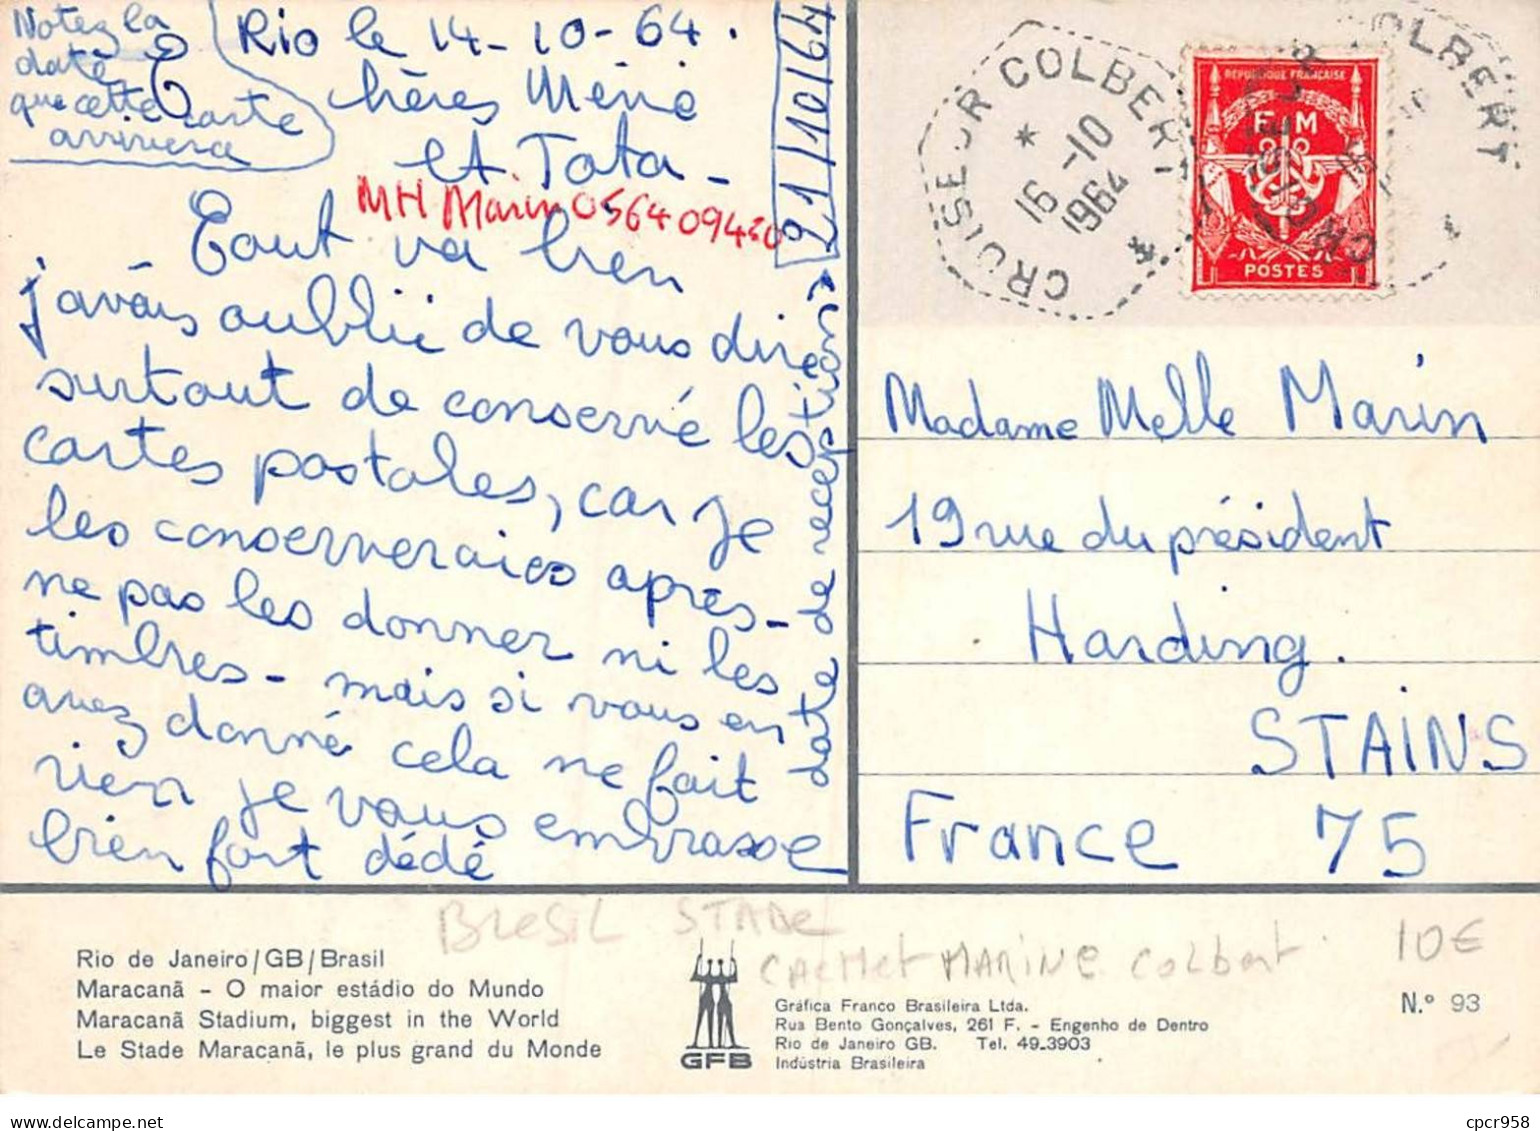 Notez la
date
que cette carte
arrivera
Rio le 14-10-64.
Chères Mémé
et Tata -
MH Marin 056409420
Tout va bien
j'avais oublié de vous dire
surtout de conservé les
cartes postales, car je
les conserverais après -
ne pas les donner ni les
timbres - mais si vous en
avez donné cela ne fait
rien je vous embrasse
bien fort dédé
21/10/64
date de reception
CROISEUR COLBERT
16-10
1964
REPUBLIQUE FRANÇAISE
F M
POSTES
CROISEUR COLBERT
Madame Melle Marin
19 rue du président
Harding.
STAINS
France 75
BresiL STADe
CACHet MARINe COLbert
10€
Rio de Janeiro/GB/Brasil
Maracanã - O maior estádio do Mundo
Maracanã Stadium, biggest in the World
Le Stade Maracanã, le plus grand du Monde
GFB
Gráfica Franco Brasileira Ltda.
Rua Bento Gonçalves, 261 F. - Engenho de Dentro
Rio de Janeiro GB. Tel. 49-3903
Indústria Brasileira
N.º 93
cpcr958